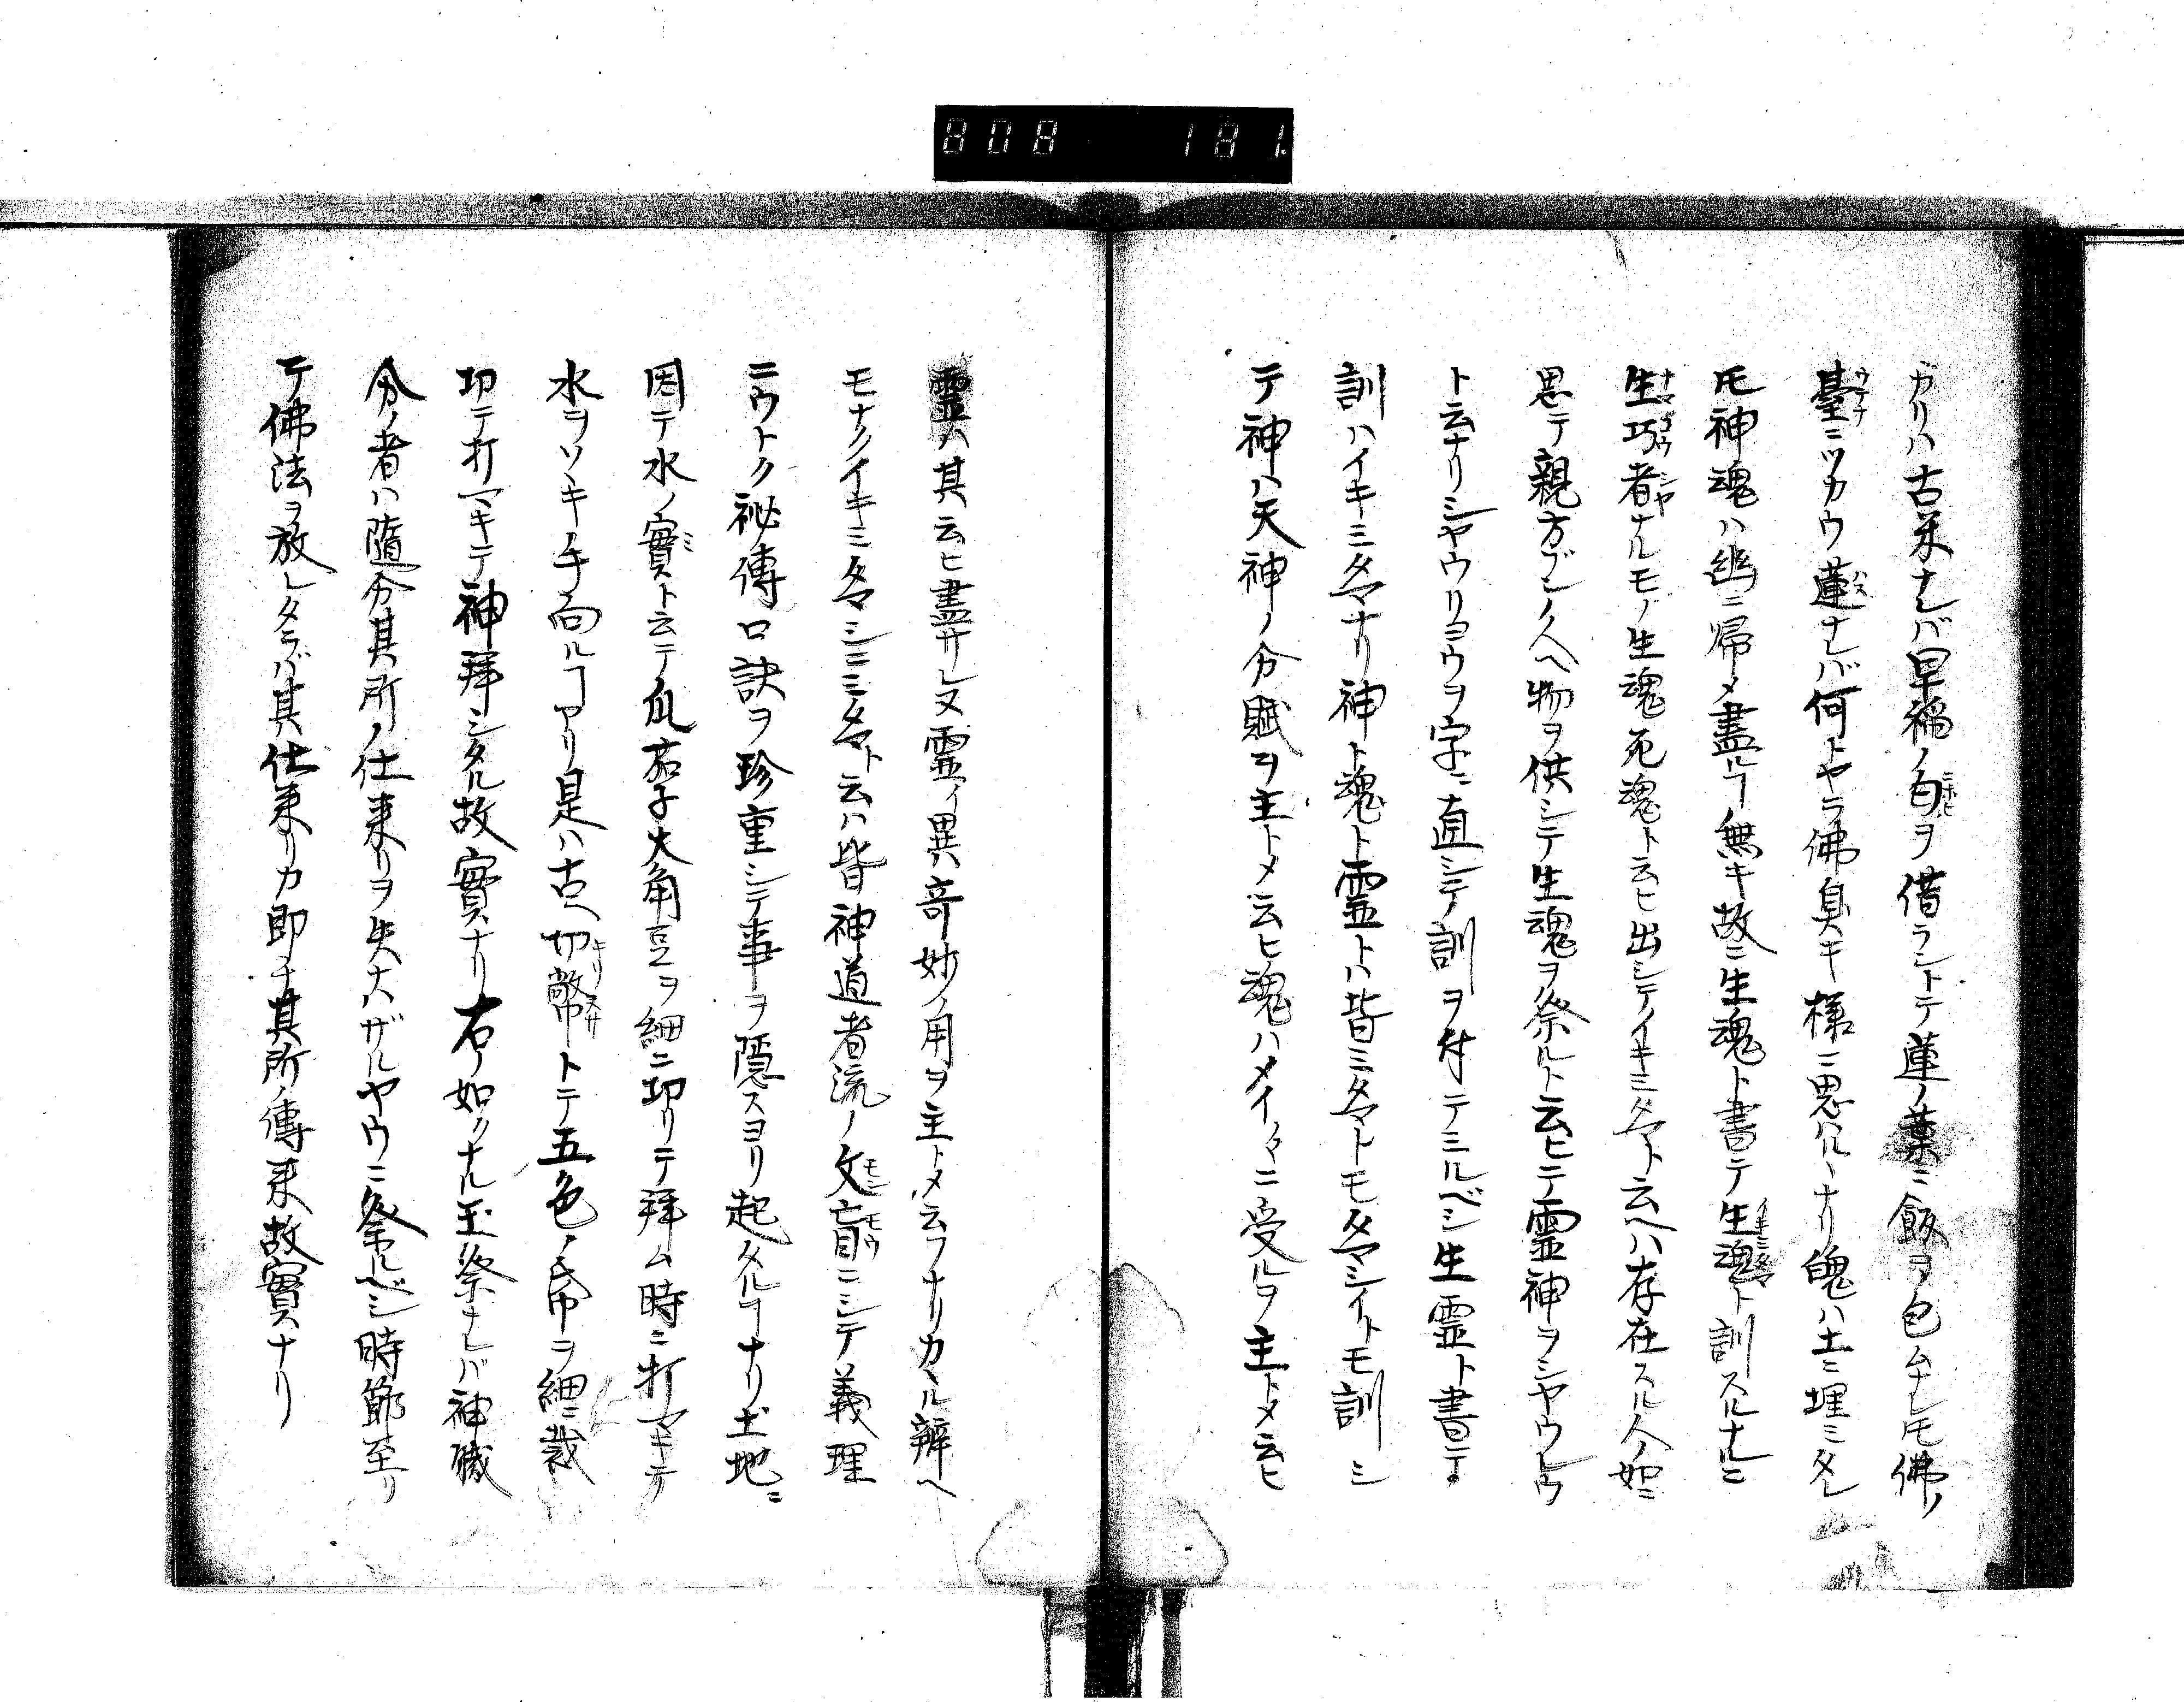 808 181
ガリハ古米ナレバ早稲ノ匂ヲ借ラントテ蓮ノ葉ニ飯ヲ包ムナレ𪜈佛ノ
臺ニツカウ蓮ナレバ何トヤラ佛臭キ様ニ思ハルヽナリ魄ハ土ニ埋ミタレ
𪜈神魂ハ幽ニ帰メ盡ルヿ無キ故ニ生魂ト書テ生魂ト訓スルナルニ
生巧者ナルモノ生魂死魂ト云ヒ出シテイキミタマト云ヘハ存在スル人ノ如ニ
思テ親方ブンノヘ物ヲ供シテ生魂ヲ祭ルト云ヒテ霊神ヲシヤウレウ
ト云ナリシヤウリヨウヲ字ニ直シテ訓ヲ付テミルベシ生霊ト書テ
訓ハイキミタマナリ神ト魂ト霊トハ皆ミタマトモタマシイトモ訓シ
テ神ハ天神ノ分賦ヲ主トメ云ヒ魂ハメイ〱ニ受ルヲ主トメ云ヒ
靈ハ其云ヒ盡サレヌ霊イ異竒妙ノ用ヲ主トメ云フナリカヽル辨ヘ
モナクイキミタマシニミタマト云ハ皆神道者流ノ文盲ニシテ義理
ニウトク祕傳口訣ヲ珍重シテ事ヲ隠スヨリ起タルヿナリ土地ニ
因テ水ノ實ト云テ瓜茄子大角豆ヲ細ニ切リテ拜ム時ニ打マキテ
水ヲソヽキ手向ルヿアリ是ハ古ヘ切幣トテ五色ノ帛ヲ細ニ裁
切テ打マキテ神拜シタル故實ナリ右ノ如クナル玉祭ナレバ神職
分ノ者ハ隨分其所ノ仕来リヲ失ハザルヤウニ祭ルベシ時節至リ
テ佛法ヲ放レタラバ其仕来リカ即チ其所ノ傳来故實ナリ